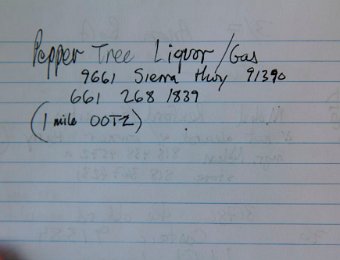 Pepper Tree Liquor/Gas
9661 Sierra Hwy 91390
661 268 1839
(1 mile OOTZ)